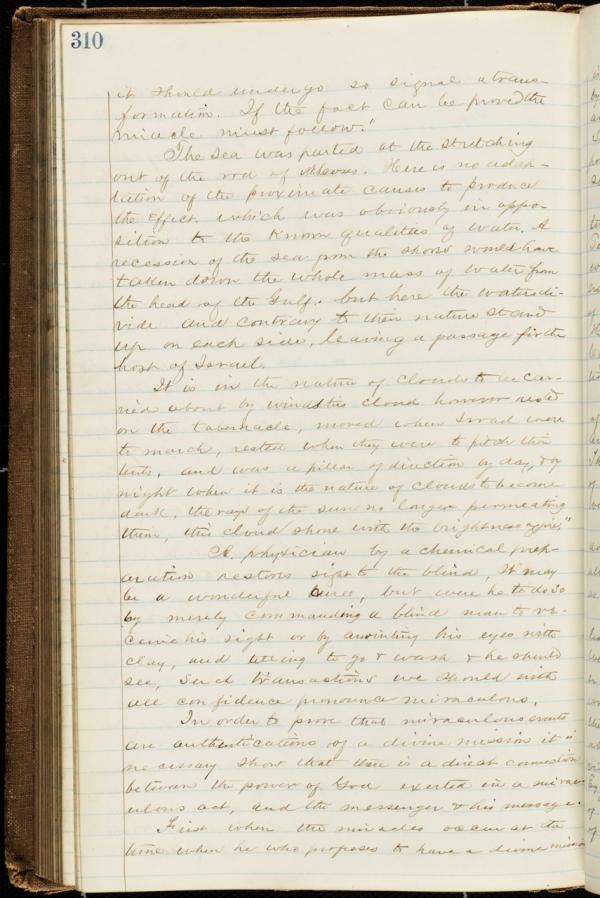 310
it should undergo so signal a trans-
formation. If the fact can be proved the
miracle must follow."
The sea was parted at the stretching
out of the rod of Moses. Here is no adap-
tation of the proximate causes to produce
the effect. which was obviously in oppo-
sition to the known qualities of water. A
recession of the sea from the shores would have
taken down the whole mass of water from
the head of the Gulf. but here the waters di-
vide and contrary to their nature stand
up on each side, leaving a passage for the
host of Israel.
It is in the nature of clouds to be car-
ried about by winds this cloud however rested
on the tabernacle, moved when Israel were
to march, rested when they were to pitch their
tents, and was a pillar of direction by day, & by
night when it is the nature of clouds to become
dark, the rays of the sun no longer permeating
them, this cloud shone with the brightness of fire."
A physician by a chemical prep-
aration restores sight to the blind, It may
be a wonderful cure, but were he to do so
by merely commanding a blind man to re-
ceive his sight or by anointing his eyes with
clay, and telling to go & wash & he should
see, Such transactions we should with
all confidence pronounce miraculous.
In order to prove that miraculous events
are authentications of a divine mission it is
necessary show that there is a direct connection
between the power of God exerted in a mirac-
ulous act, and the messenger & his message.
First when the miracles occur at the
time when he who proposes to have a divine mission